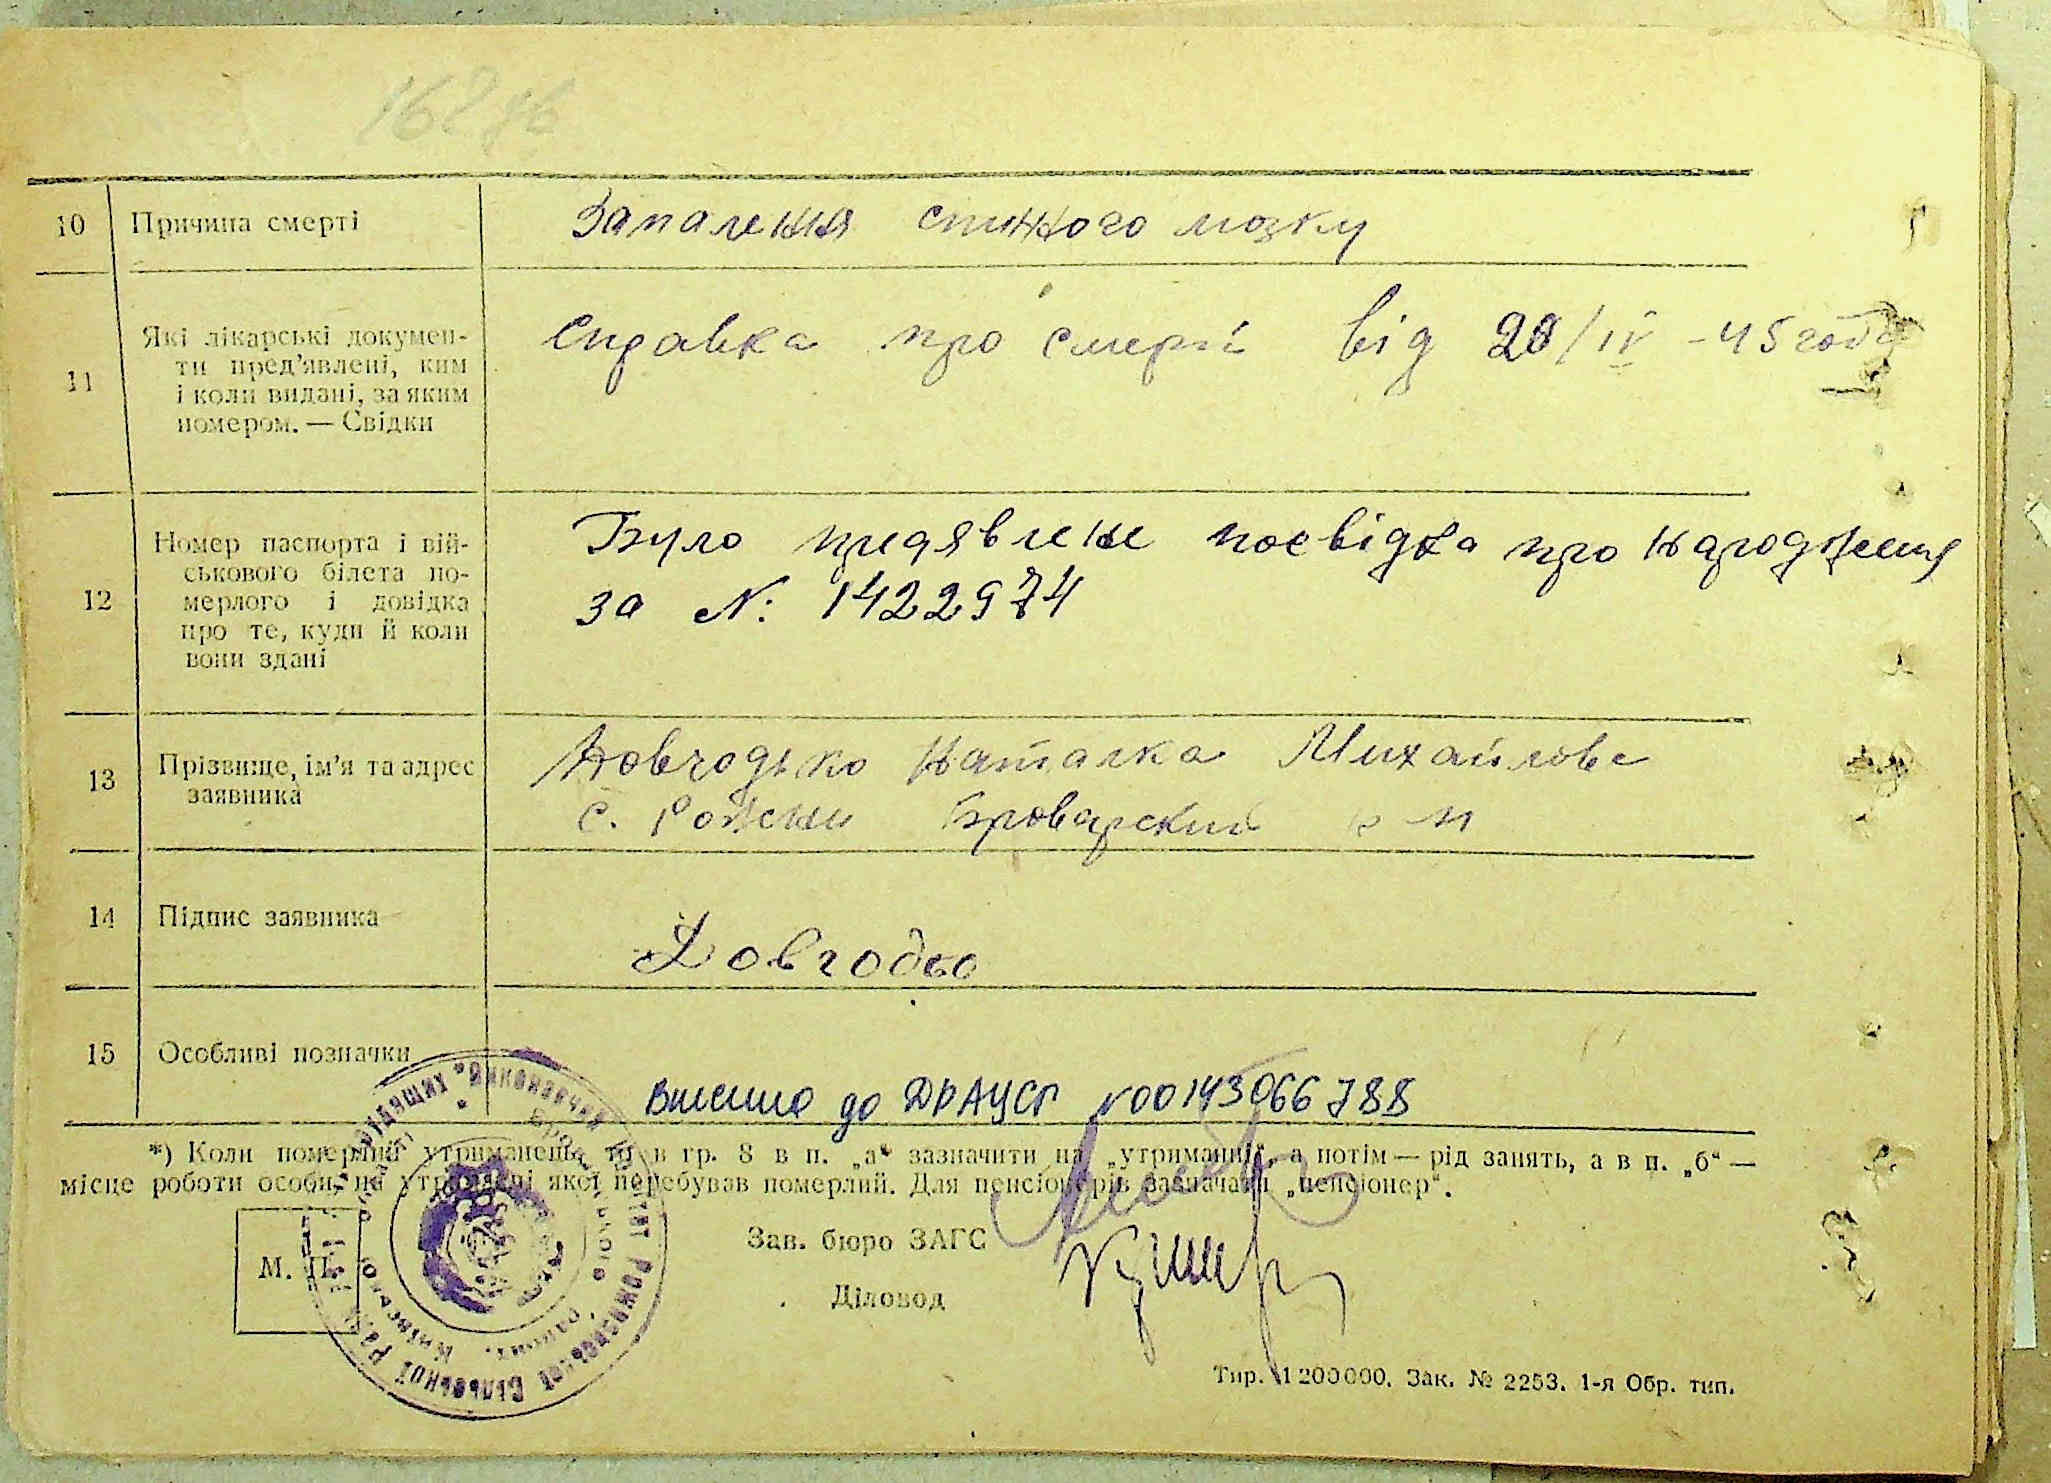 168 зв
10 Причина смерті Запалення спиного мозку
11 Які лікарські докумен-
ти пред'явлені, ким
і коли видані, за яким
номером. — Свідки
Справка про смерті від 28/IV - 45 года
12 Номер паспорта і вій-
ськового білета по-
мерлого і довідка
про те, куди й коли
вони здані
Було предявлене посвідка про народження
за №: 1422974
13 Прізвище, ім'я та адрес
заявника
Довгодько Наталка Михайлова
с. Рожни Броварский р-н
14 Підпис заявника
Довгодько
15 Особливі позначки
Внесено до ДРАЦСГ №00143066788
*) Коли померлий утриманець, то в гр. 8 в п. „а“ зазначити на „утриманні“, а потім — рід занять, а в п. „б“ —
місце роботи особи, на утриманні якої перебував померлий. Для пенсіонерів зазначати „пенсіонер“.
Зав. бюро ЗАГС
М. П.
Діловод
Виконавчий Комітет Рожнівської Сільської Ради
Київської
Тир. 1 200 000. Зак. № 2253. 1-я Обр. тип.